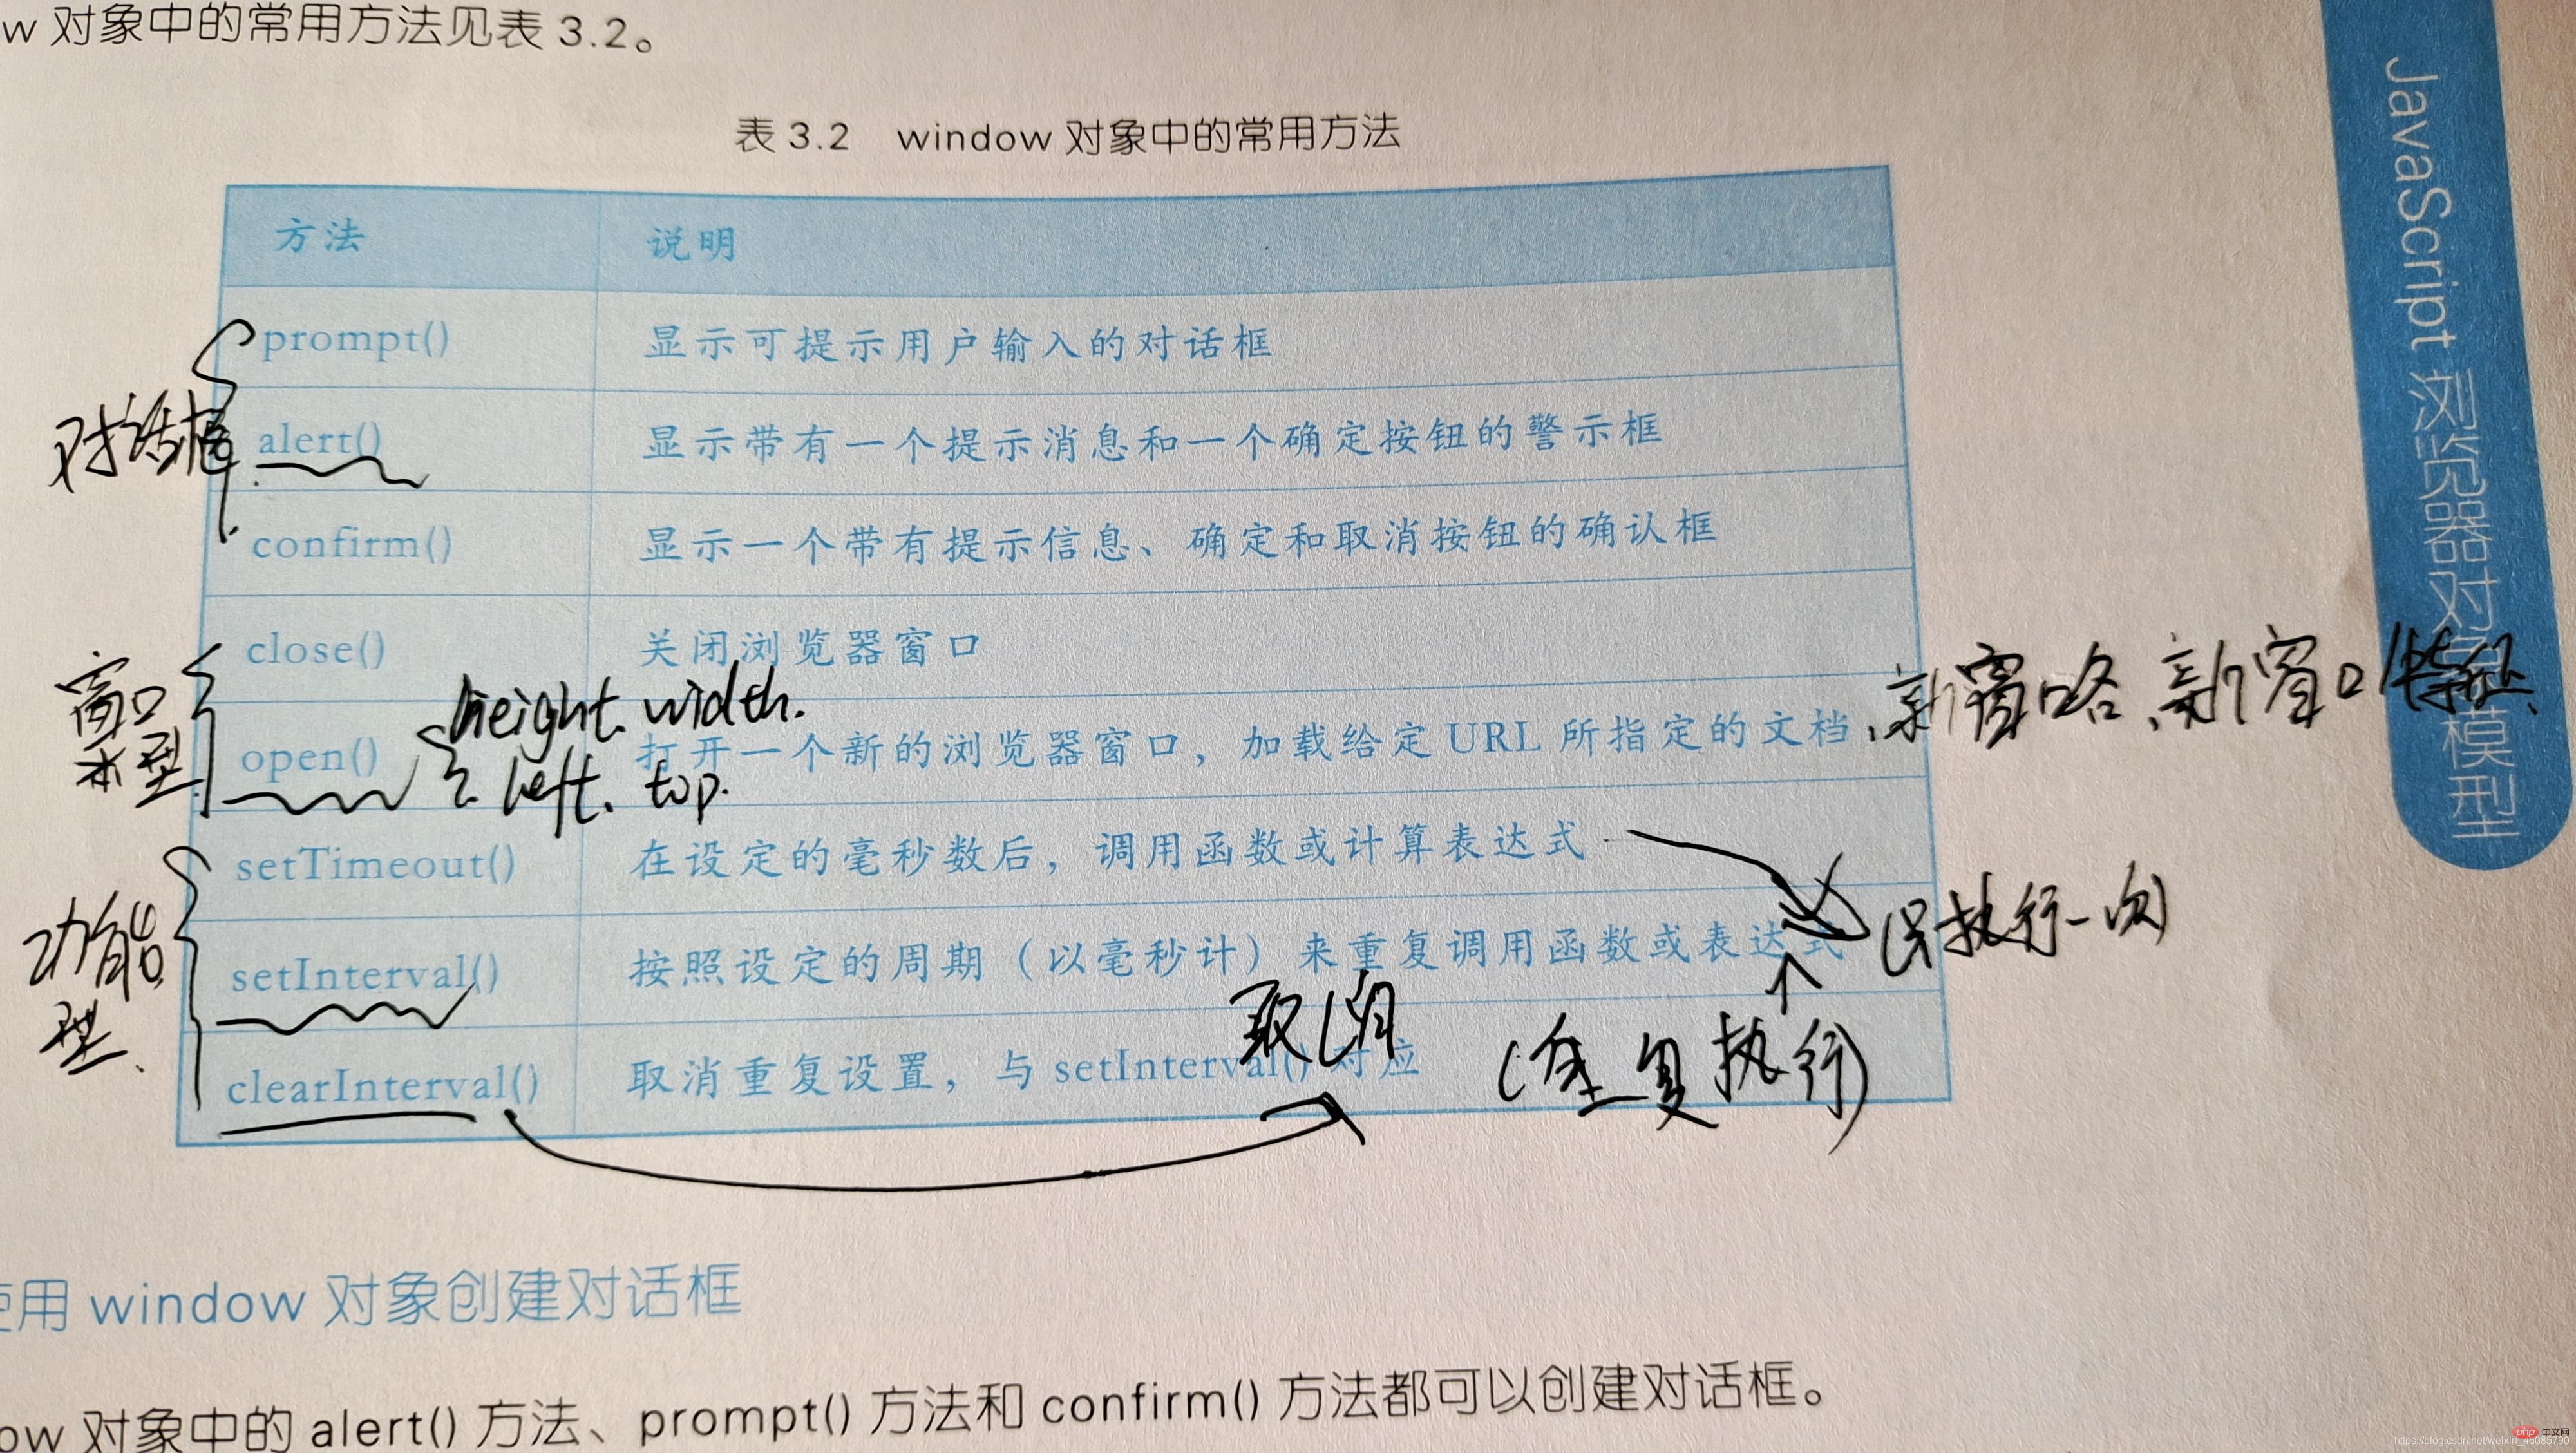 w 对象中的常用方法见表 3.2。
表 3.2 window 对象中的常用方法
方法 说明
prompt() 显示可提示用户输入的对话框
对话框
alert() 显示带有一个提示消息和一个确定按钮的警示框
confirm() 显示一个带有提示信息、确定和取消按钮的确认框
close() 关闭浏览器窗口
窗口
height. width.
open() 打开一个新的浏览器窗口，加载给定 URL 所指定的文档
、新窗口 、新窗口特征、
型
left. top.
setTimeout() 在设定的毫秒数后，调用函数或计算表达式
只执行一次
功能
型、
setInterval() 按照设定的周期（以毫秒计）来重复调用函数或表达式
取消
(重复执行)
clearInterval() 取消重复设置，与 setInterval() 对应
使用 window 对象创建对话框
ow 对象中的 alert() 方法、prompt() 方法和 confirm() 方法都可以创建对话框。
JavaScript 浏览器对象模型
php 中文网
https://blog.csdn.net/weixin_46085790